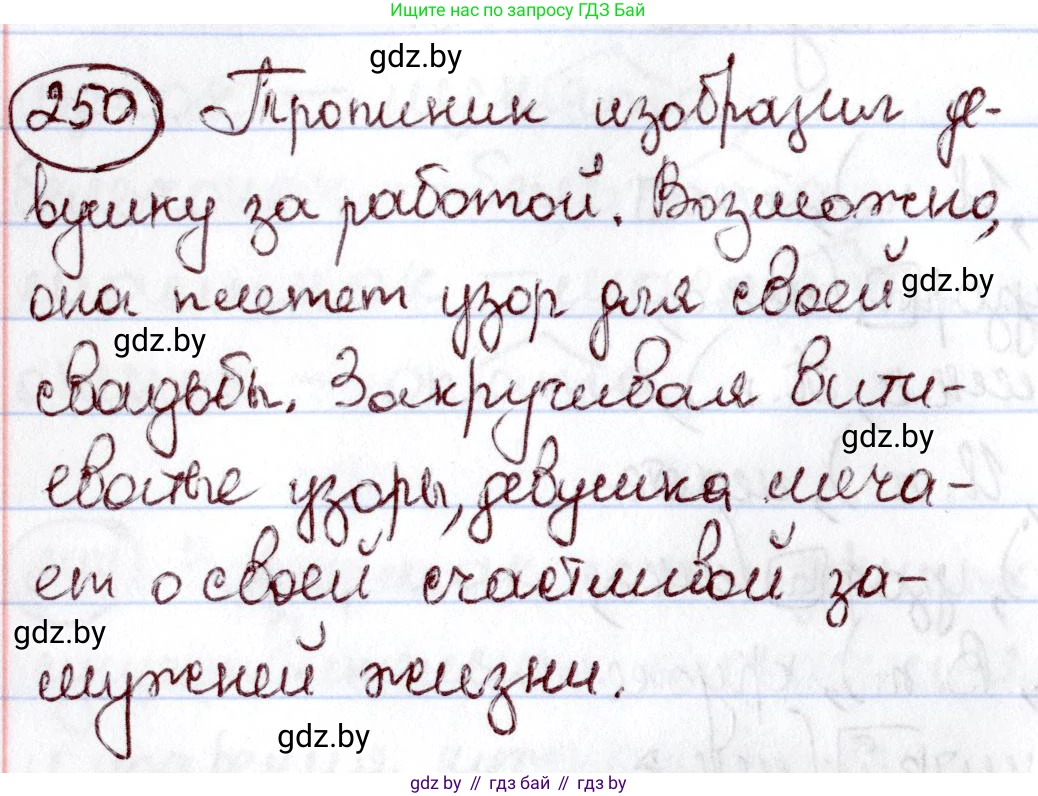 Ищите нас по запросу ГДЗ Бай
gdz.by
250 Тропинин изобразил де-
вушку за работой. Возможно,
она плетет узор для своей gdz.by
gdz.by
свадьбы. Закручивая вити-
gdz.by
еватые узоры, девушка меча-
ет о своей счастливой за-
gdz.by
мужней жизни.
gdz.by
gdz.by // гдз бай // гдз by